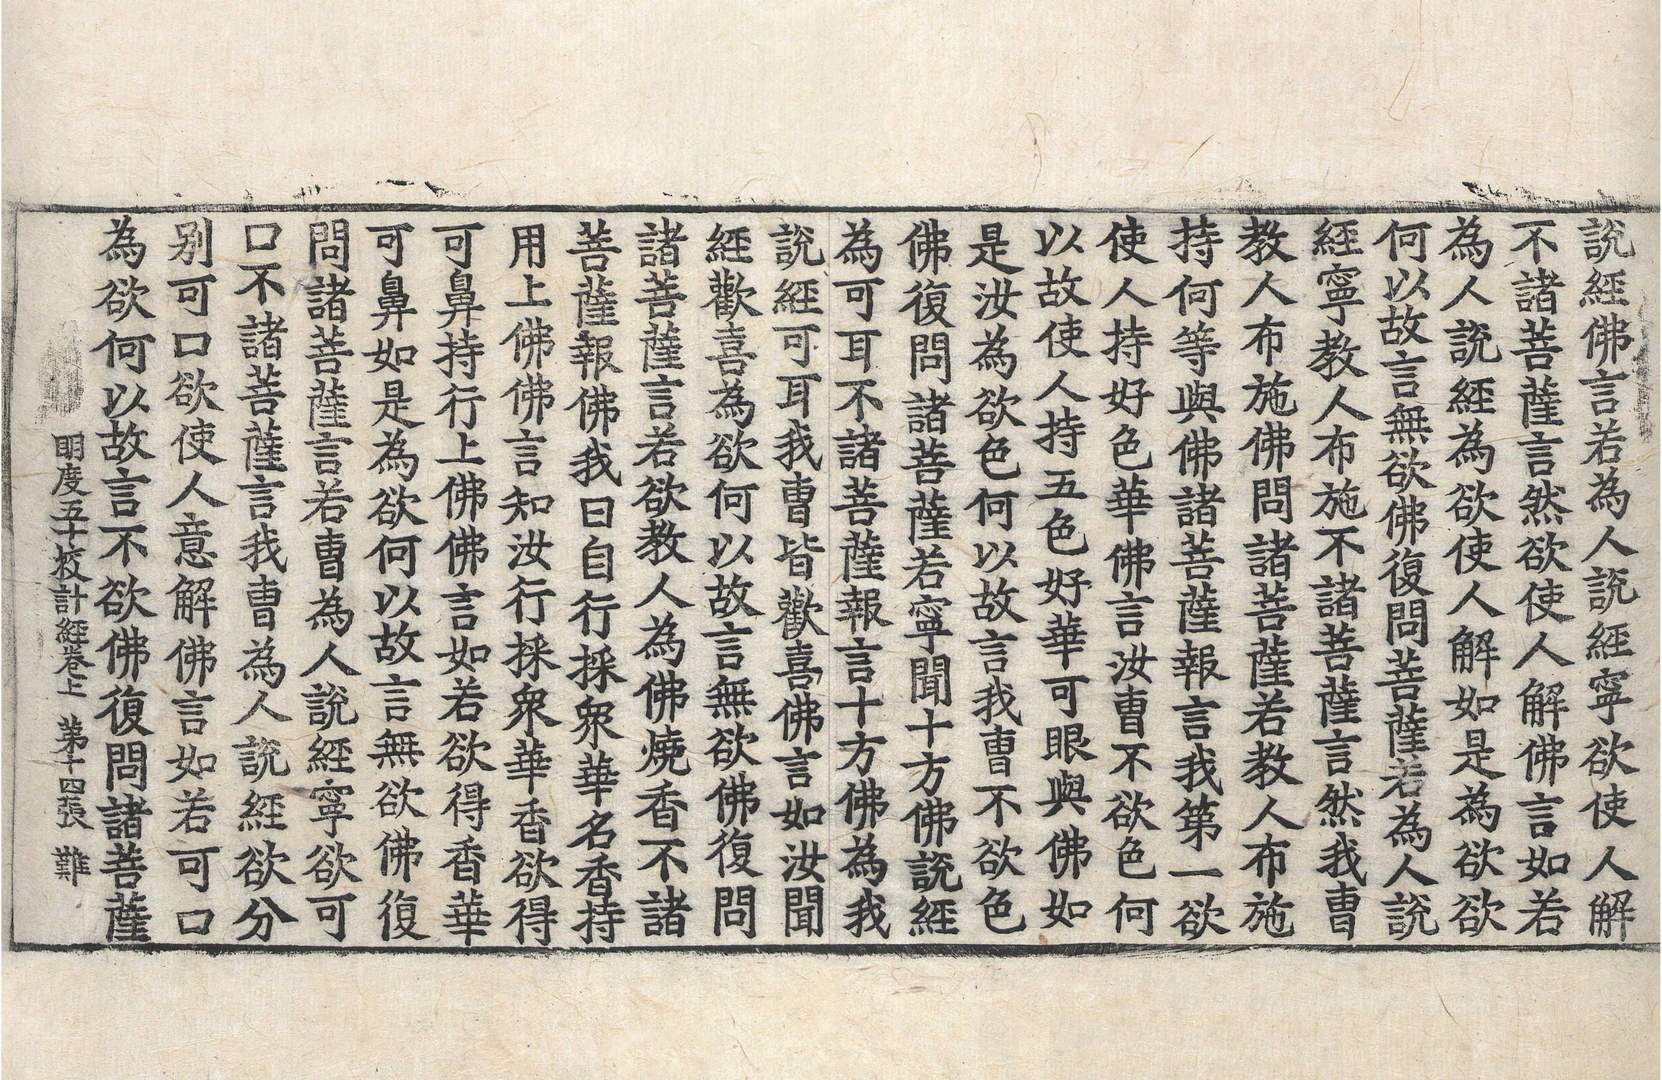 說經佛言若為人說經寧欲使人解
不諸菩薩言然欲使人解佛言如若
為人說經為欲使人解如是為欲欲
何以故言無欲佛復問菩薩若為人說
經寧教人布施不諸菩薩言然我曹
教人布施佛問諸菩薩若教人布施
持何等與佛諸菩薩報言我第一欲
使人持好色華佛言汝曹不欲色何
以故使人持五色好華可眼與佛如
是汝為欲色何以故言我曹不欲色
佛復問諸菩薩若寧聞十方佛說經
為可耳不諸菩薩報言十方佛為我
說經可耳我曹皆歡喜佛言如汝聞
經歡喜為欲何以故言無欲佛復問
諸菩薩言若欲教人為佛燒香不諸
菩薩報佛我曰自行採眾華名香持
用上佛佛言知汝行採眾華香欲得
可鼻持行上佛佛言如若欲得香華
可鼻如是為欲何以故言無欲佛復
問諸菩薩言若曹為人說經寧欲可
口不諸菩薩言我曹為人說經欲分
別可口欲使人意解佛言如若可口
為欲何以故言不欲佛復問諸菩薩
明度五十校計經卷上 第十四張 難